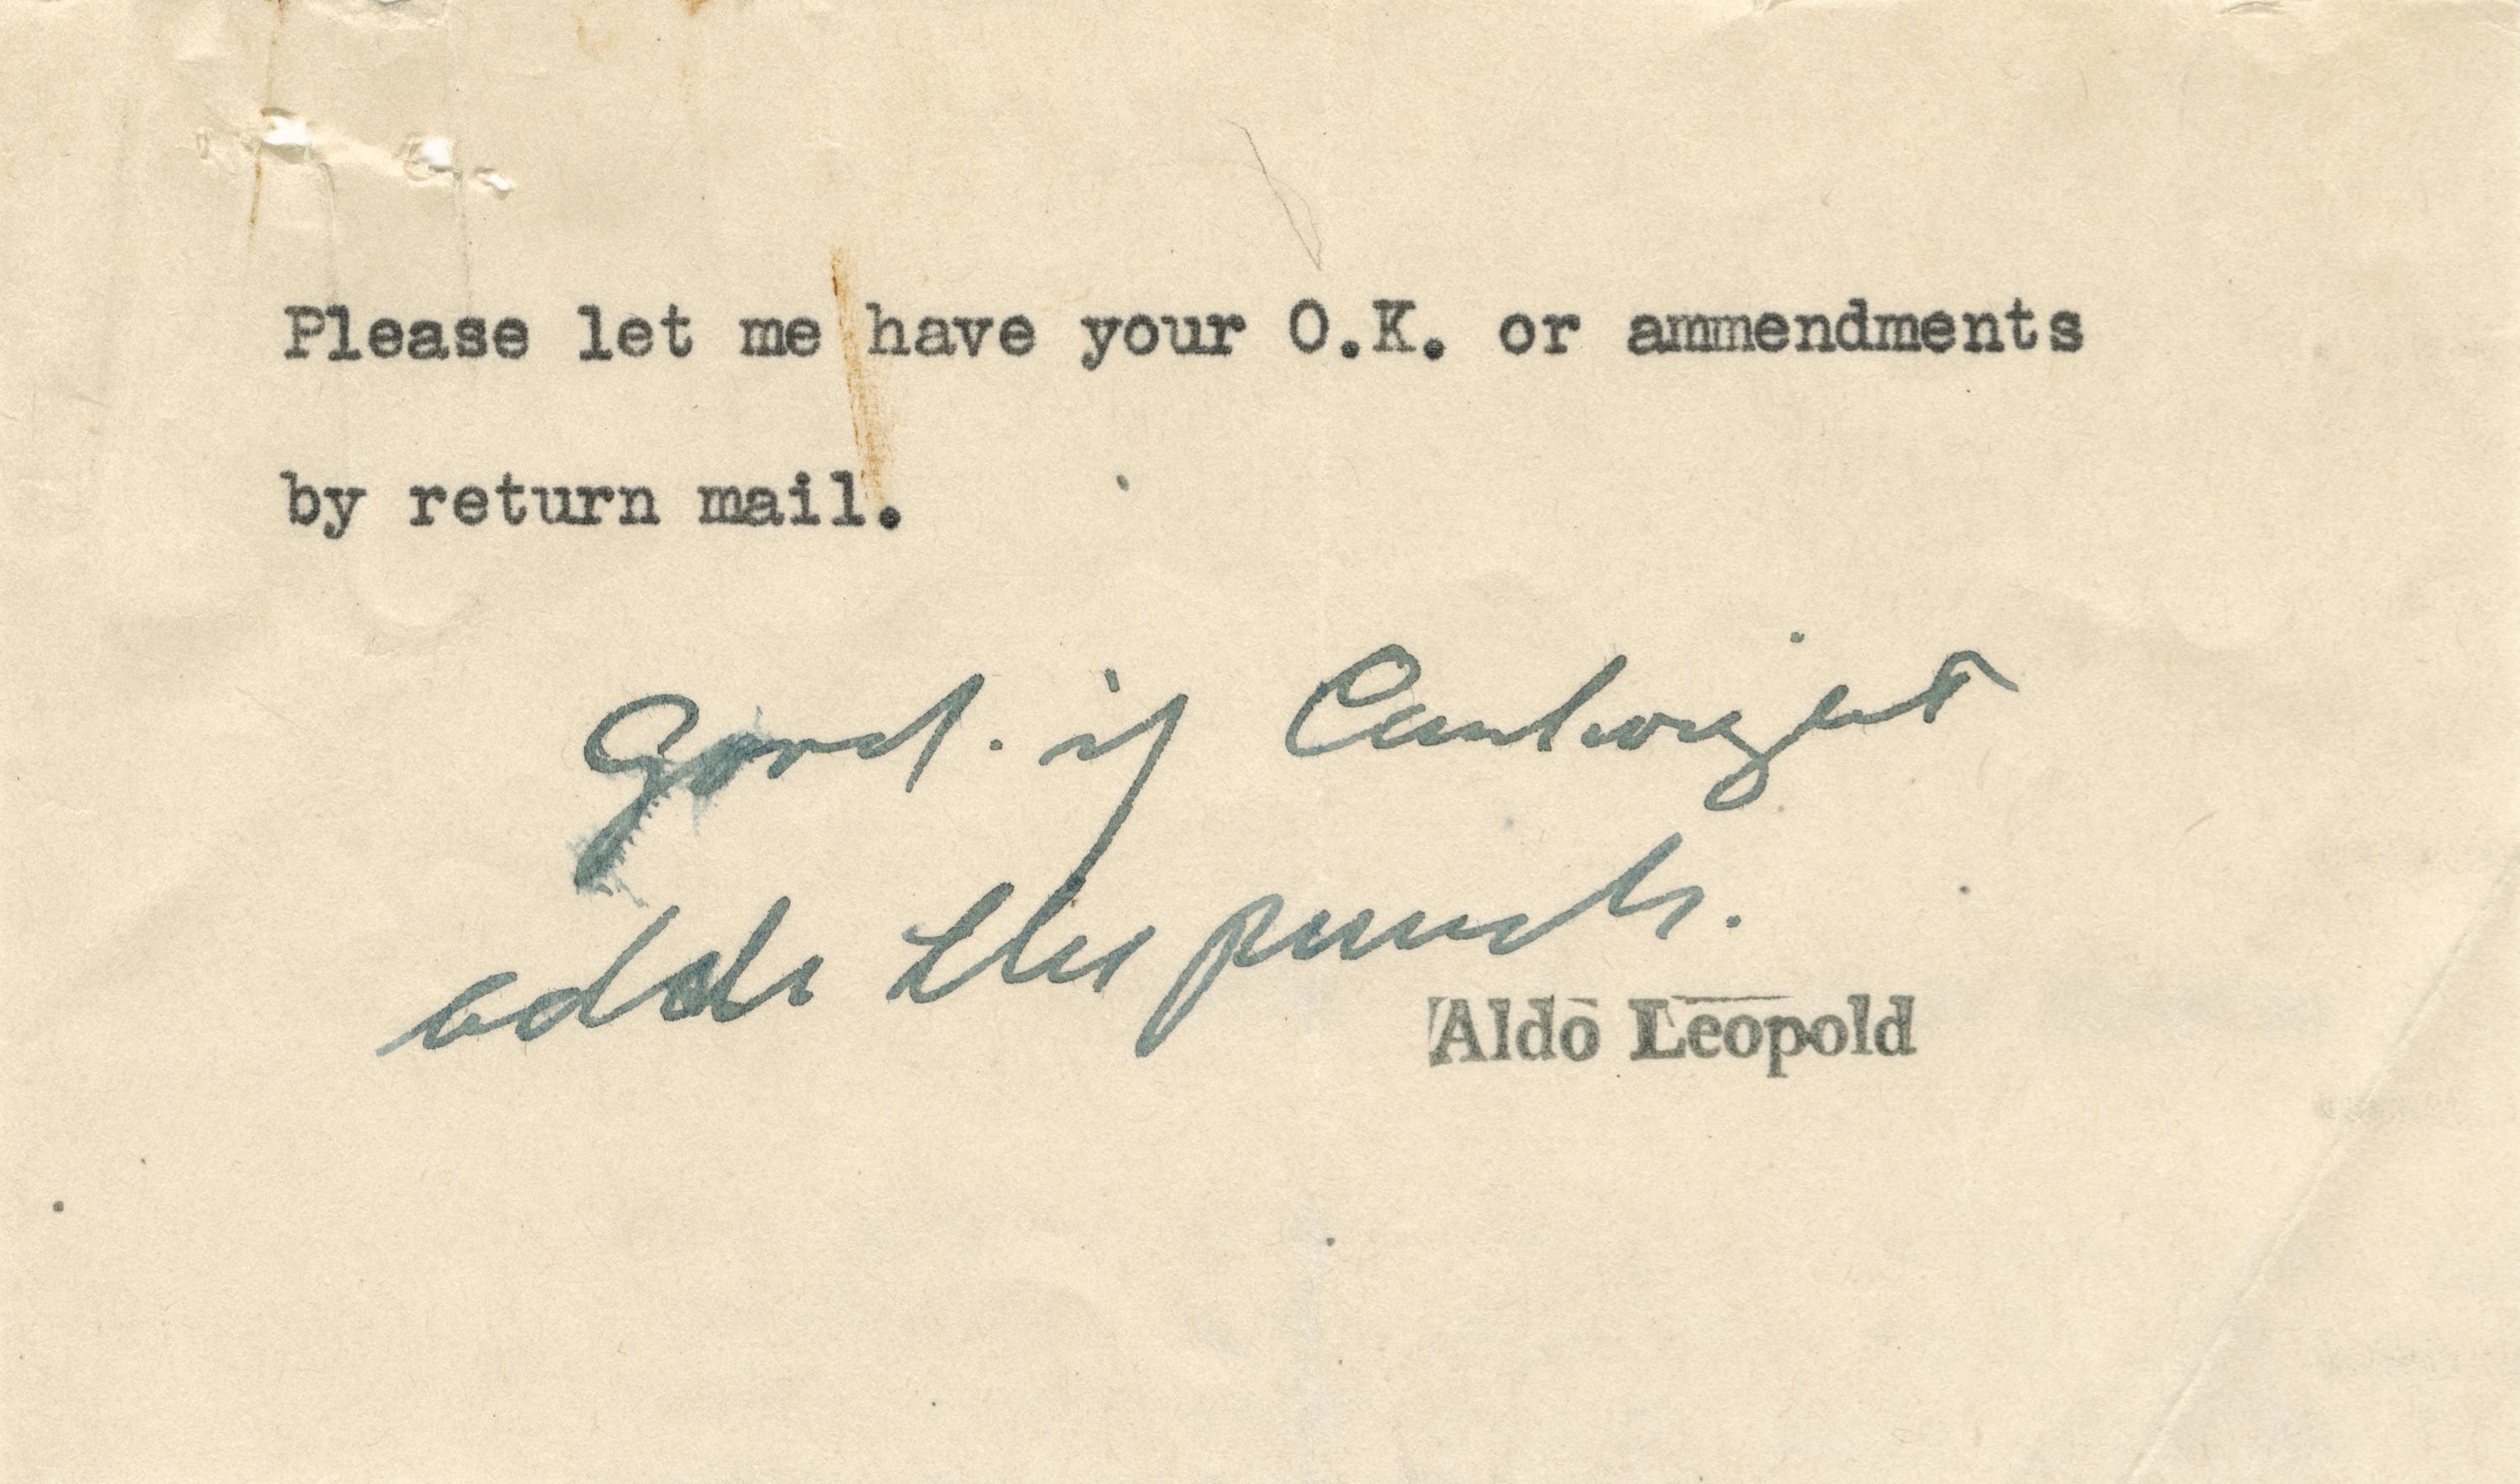 Please let me have your O.K. or ammendments
by return mail.
Good. if Cartwright
adds this
Aldo Leopold